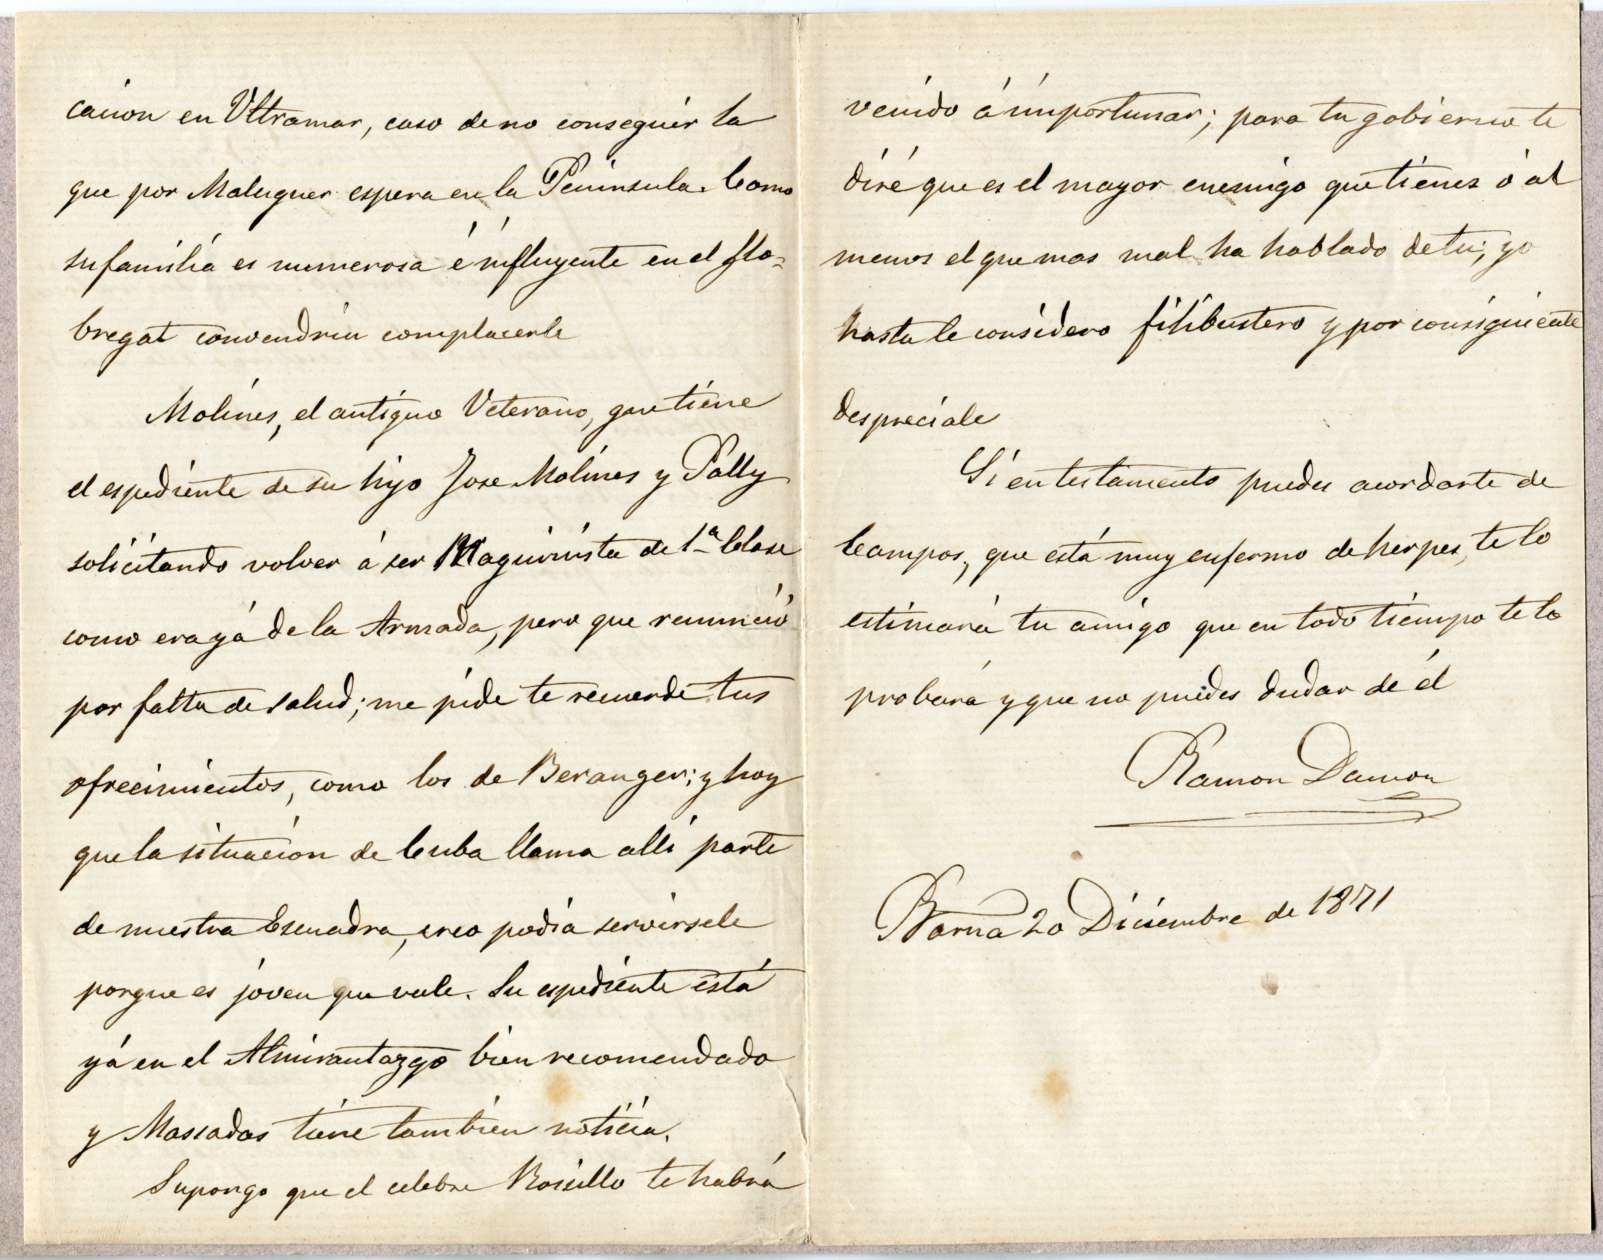 cacion en Ultramar, caso de no conseguir la
que por Maluquer espera en la Peninsula. Como
su familia es numerosa é influyente en el Llo-
bregat convendria complacerle
Molines, el antiguo Veterano, que tiene
el espediente de su hijo Jose Molines y Pally
solicitando volver á ser Maquinista de 1ª Clase
como era yá de la Armada, pero que renunció
por falta de salud; me pide te recuerde tus
ofrecimientos, como los de Beranger; y hoy
que la situacion de Cuba llama alli parte
de nuestra Escuadra, creo podia servirsele
porque es jóven que vale. Su espediente está
yá en el Almirantazgo bien recomendado
y Mascadas tiene tambien noticia.
Supongo que el celebre Rosillo te habrá
venido á importunar; para tu gobierno te
diré que es el mayor enemigo que tienes ó al
menos el que mas mal ha hablado de tu; yo
hasta le considero filibustero y por consiguiente
despreciale
Si en testamento puedes acordarte de
Campos, que está muy enfermo de herpes, te lo
estimará tu amigo que en todo tiempo te lo
probará y que no puedes dudar de él
Ramon Damon
Barna 20 Diciembre de 1871